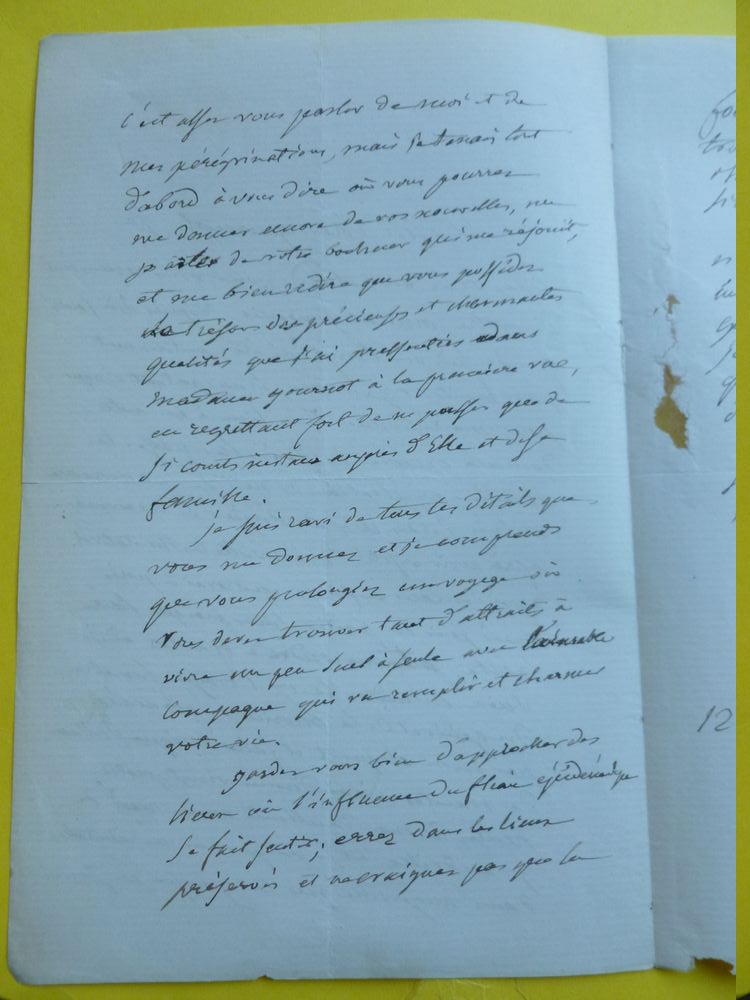 C'est assez vous parler de moi et de
mes pérégrinations, mais je tenais tout
d'abord à vous dire où vous pourrez
me donner encore de vos nouvelles, me
parler de votre bonheur qui me réjouit,
et me bien redire que vous possédez
le trésor des précieuses et charmantes
qualités que j'ai pressenties dans
Madame à la première vue,
en regrettant fort de ne passer que de
si courts instans auprès d'Elle et de sa
famille.
Je suis ravi de tous les détails que
vous me donnez et je comprends
que vous prolongiez un voyage où
vous devez trouver tant d'attraits à
vivre un peu seul à seule avec l'aimable
compagne qui va remplir et charmer
votre vie.
gardez vous bien d'approcher des
lieux où l'influence du fléau épidémique
se fait sentir; errez dans les lieux
préservés et ne craignez pas que la
12